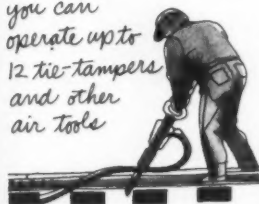 you can
operate up to
12 tie-tampers
and other
air tools